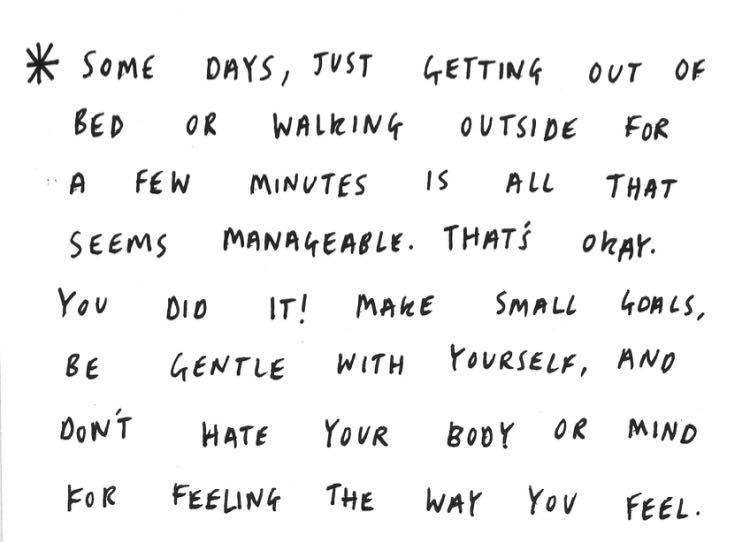 * SOME DAYS, JUST GETTING OUT OF
BED OR WALKING OUTSIDE FOR
A FEW MINUTES IS ALL THAT
SEEMS MANAGEABLE. THAT'S OKAY.
YOU DID IT! MAKE SMALL GOALS,
BE GENTLE WITH YOURSELF, AND
DON'T HATE YOUR BODY OR MIND
FOR FEELING THE WAY YOU FEEL.